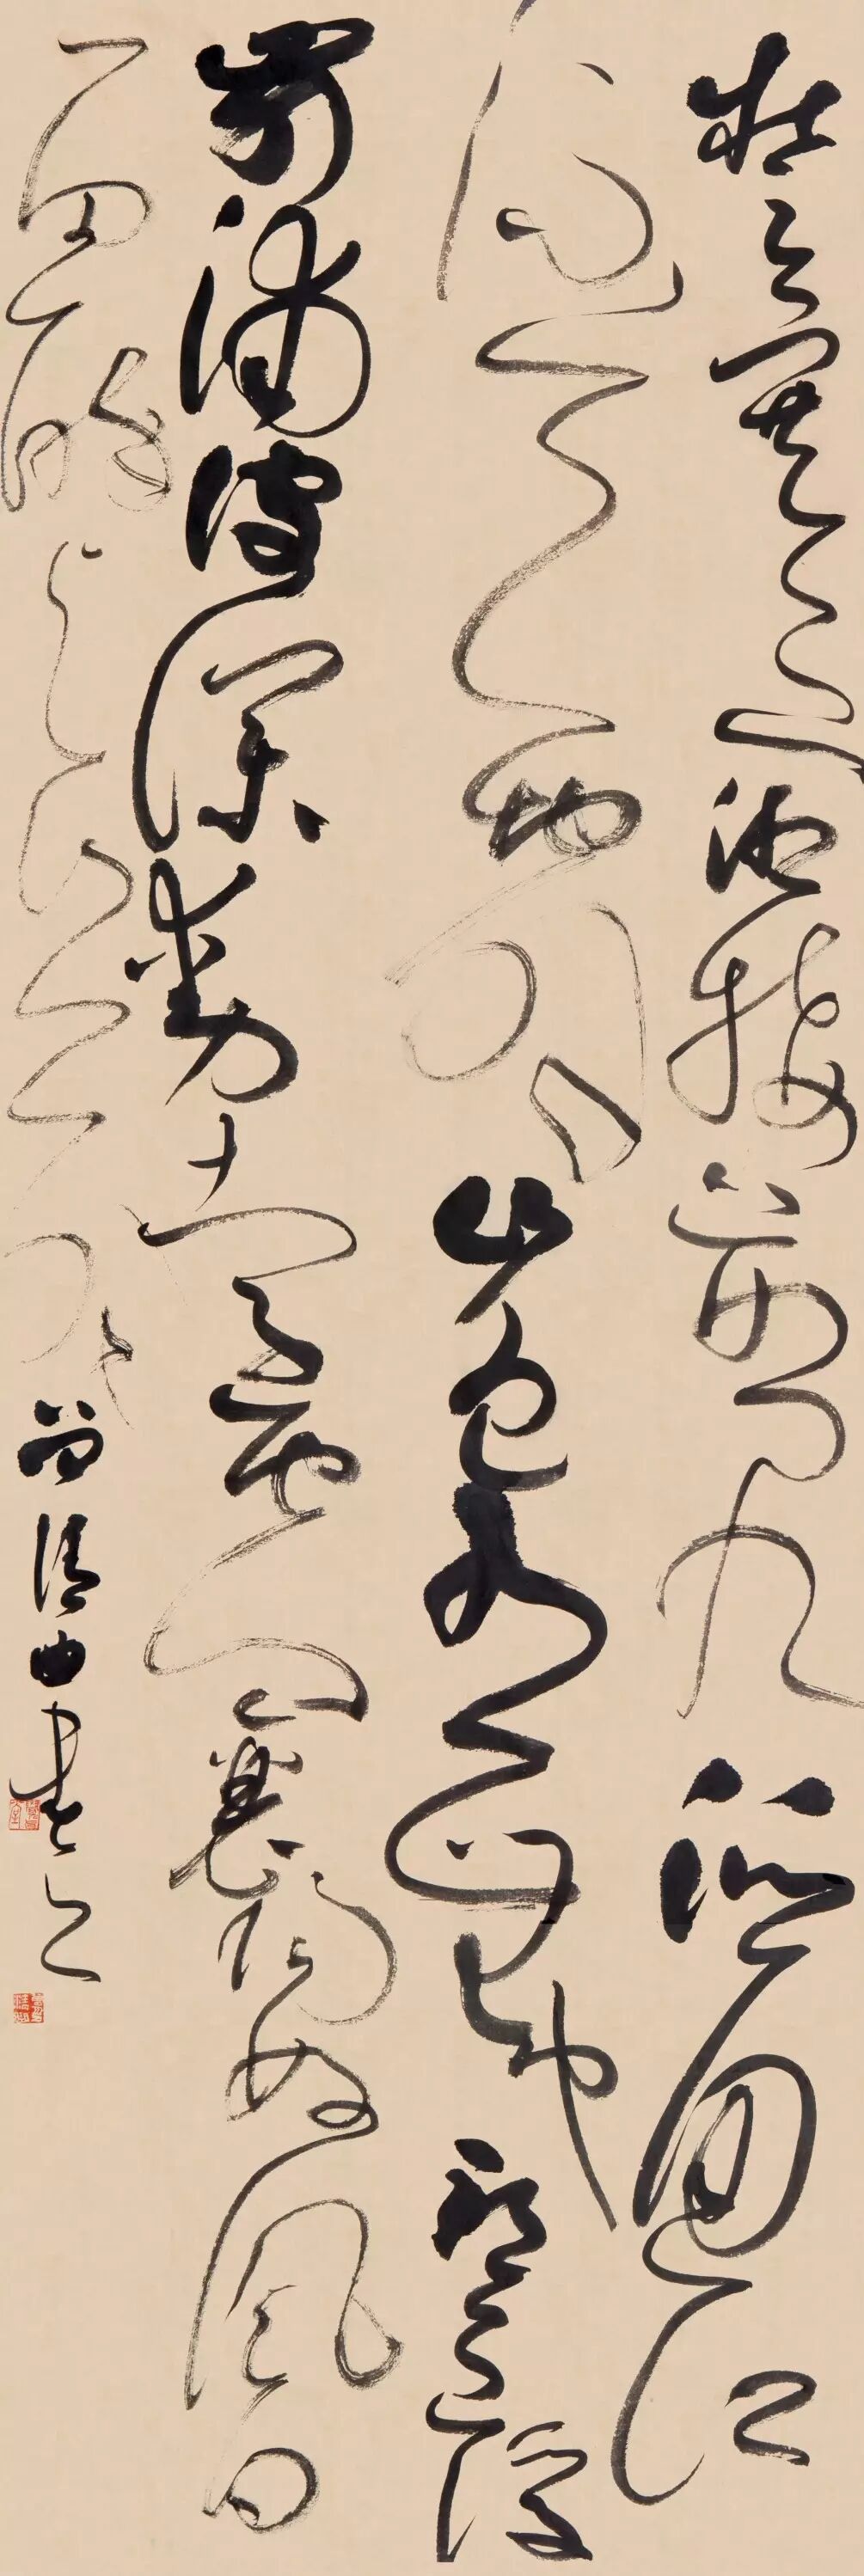 楚塞三湘接荆门九派通江
流天地外山色有无中郡邑浮
前浦波澜动远空襄阳好风日
留醉与山翁
书之